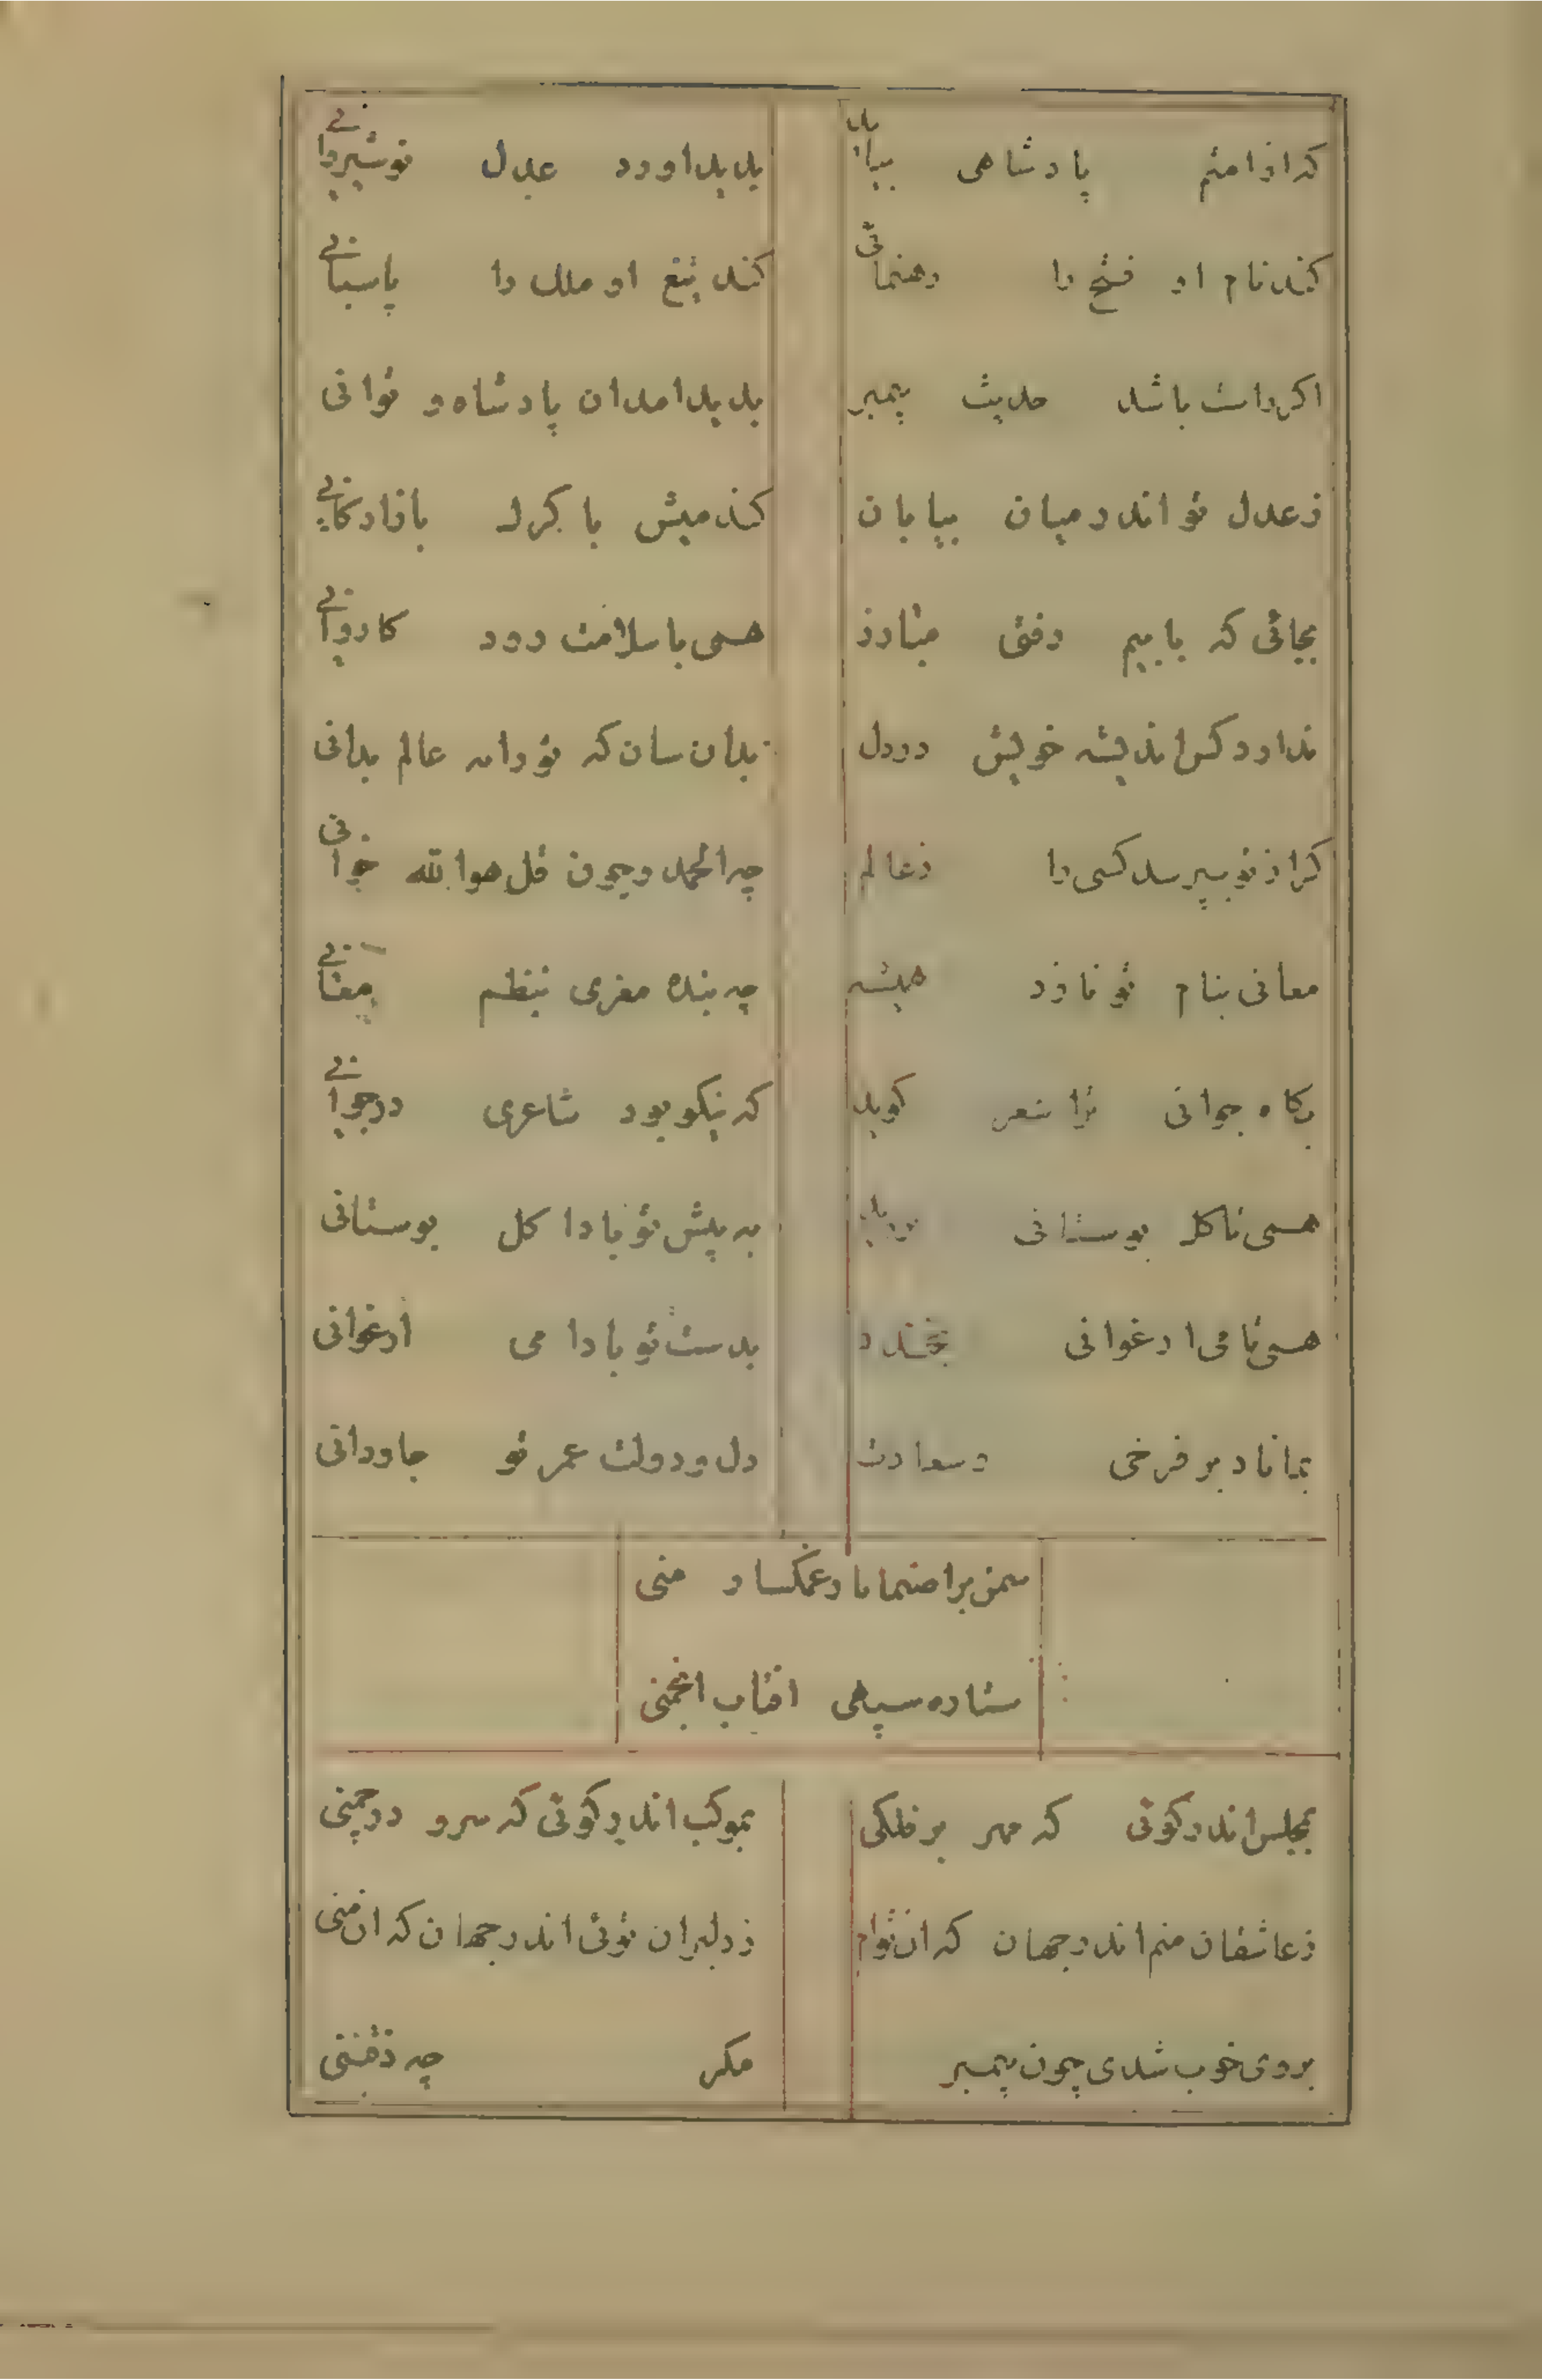 که از امتم پادشاهی بیاید پدید اورد عدل نوشیروانی
کند نام او فتح را رهنمائی کند تیغ او ملک را پاسبانی
اکر راست باشد حدیث پیمبر پدید امد ان پادشاه و توانی
ز عدل تو اندر میان بیابان کند میش با کرک بازارکانی
بجائی که بابیم رفتی مبارز همی با سلامت رود کاروانی
نداند کس اندیشه خویش در دل بدان سان که تو راه عالم بدانی
کر از تو بپرسد کسی را ز عالم چه الحمد و چون قل هو الله خوانی
معانی بنام تو نازد همیشه چه بنده معزی بنظم معانی
بکاه جوانی ترا شعر کوید که نیکو بود شاعری در جوانی
همی تا کل بوستانی به پیش تو بادا کل بوستانی
همی تا می ارغوانی بخندد بدست تو بادا می ارغوانی
بماناد بر فرخی و سعادت دل و دولت عمر تو جاودانی
سمن برا صنما یار غمکسار منی
ستاره سپهی افتاب انجمنی
بمجلس اندر کوئی که مهر بر فلکی بموکب اندر کوئی که سرو در چمنی
ز عاشقان منم اندر جهان که ان توام ز دلبران توئی اندر جهان که ان منی
بروی خوب شدی چون پیمبر مکر چه ذقنی